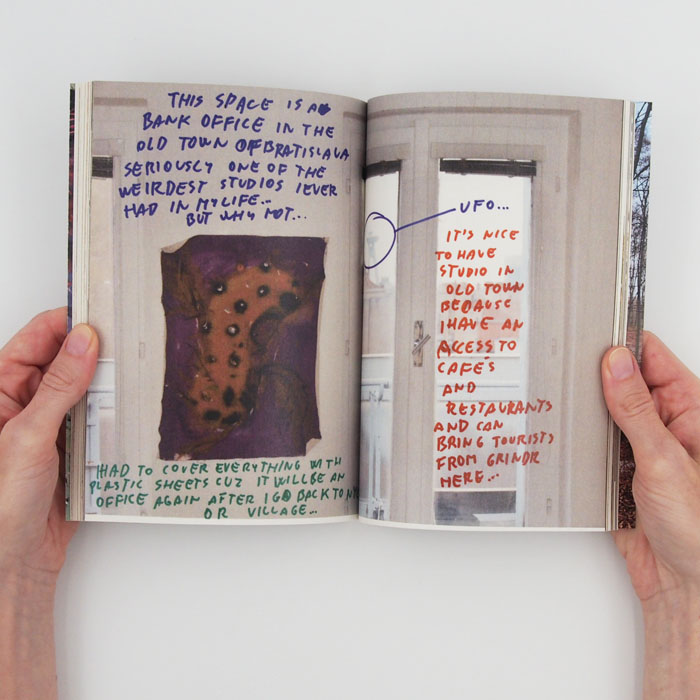 THIS SPACE IS A
BANK OFFICE IN THE
OLD TOWN OF BRATISLAVA
SERIOUSLY ONE OF THE
WEIRDEST STUDIOS I EVER
HAD IN MY LIFE..
BUT WHY NOT...
I HAD TO COVER EVERYTHING WITH
PLASTIC SHEETS CUZ IT WILL BE AN
OFFICE AGAIN AFTER I GO BACK TO NY
OR VILLAGE...
UFO...
IT'S NICE
TO HAVE
STUDIO IN
OLD TOWN
BECAUSE
I HAVE AN
ACCESS TO
CAFE'S
AND
RESTAURANTS
AND CAN
BRING TOURISTS
FROM GRINDR
HERE...